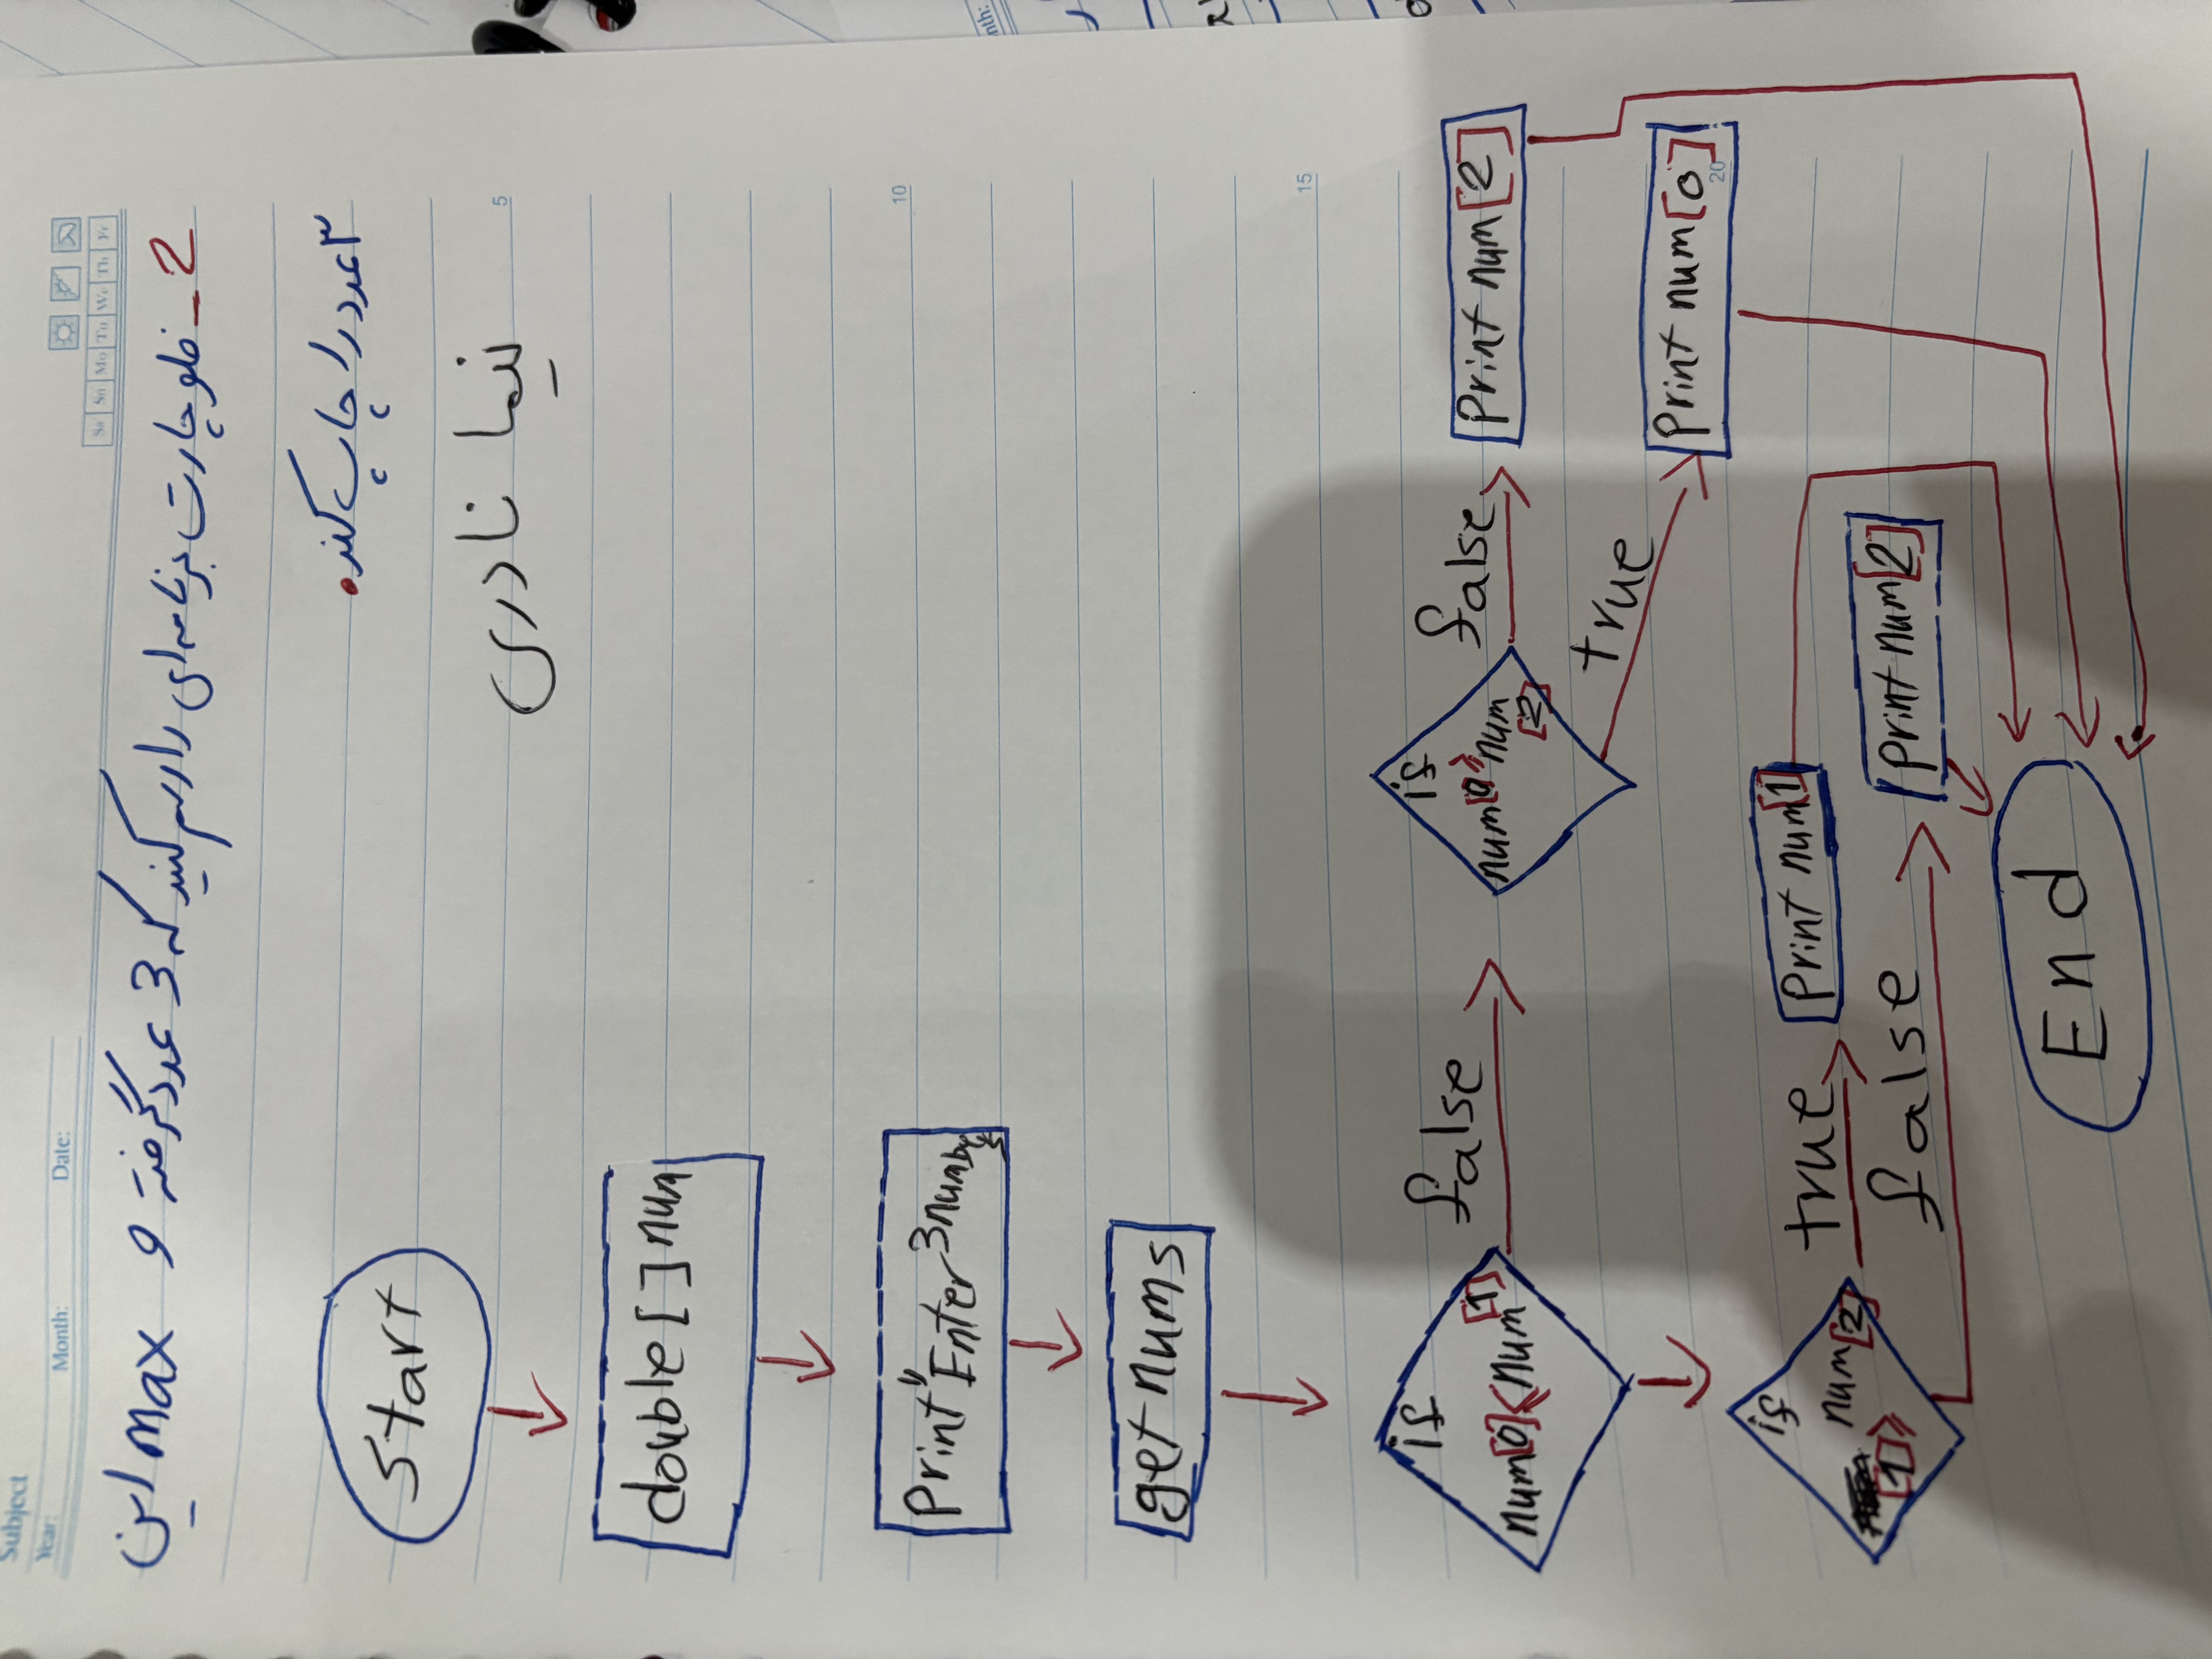 Subject
Year:
Month:
Date:
Sa Su Mo Tu We Th Fr
2_ فلوچارت برنامه‌ای را رسم کنید که 3 عدد گرفته و max این
۳ عدد را چاپ کند.
Start
نیما نادری
5
double[] num
10
Print "Enter 3 numbers
get nums
15
if
num[0]<num[1]
false
if
num[0]>num[2]
false
Print num[2]
true
Print num[0]
20
if
[1]> num[2]
true
Print num[1]
false
Print num[2]
End
nth: